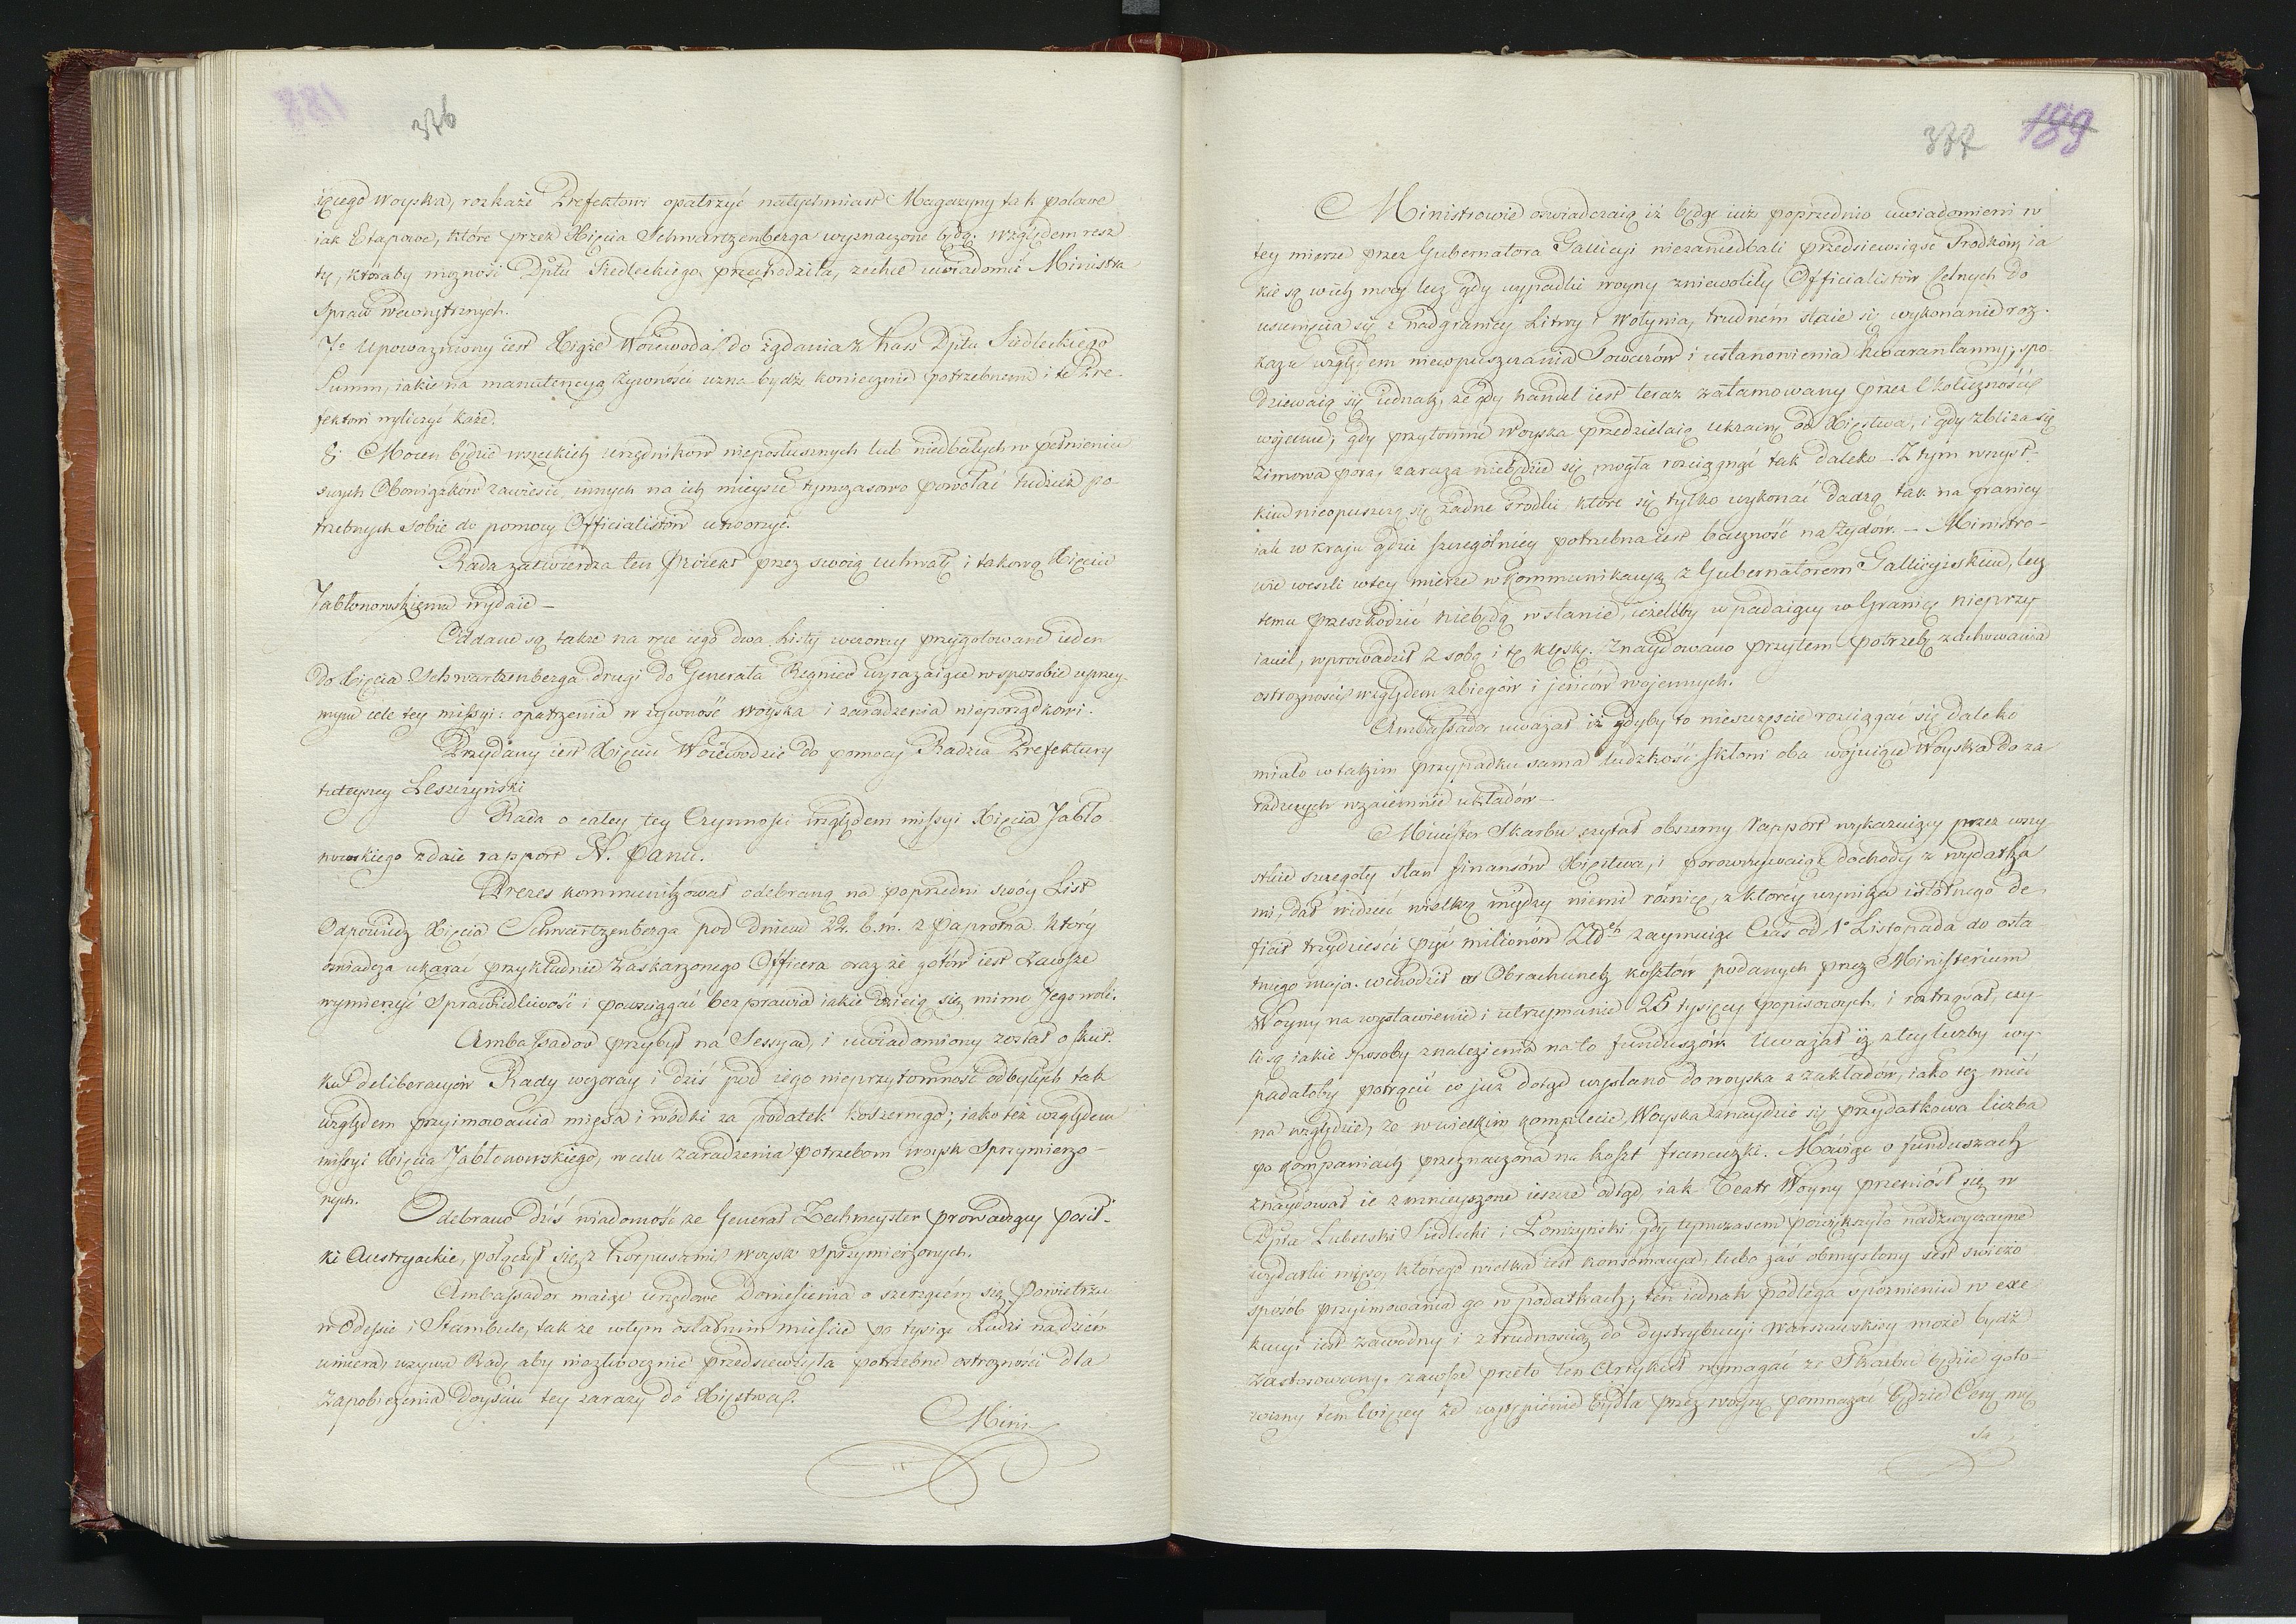 376
iącego Woyska, rozkaże Prefektowi opatrzyć natychmiast Magazyny tak polowe
iak Etapowe, które przez Xięcia Schwartzenberga wyznaczone będą. względem resz
ty, któraby możność Dptu Siedleckiego przechodziła, zechce uwiadomić Ministra
Spraw Wewnętrznych.
7o Upoważniony iest Xiąże Woiewoda do żądania z Kass Dptu Siedleckiego
Summ, iakie na manutencyą żywności uzna bydź koniecznie potrzebnemi i te Pre-
fektowi wyliczyć każe.
8. Mocen będzie wszelkich urzędników nieposłusznych lub niedbałych w pełnieniu
swych Obowiązków zawiesić, innych na ich mieysce tymczasowo powołać tudzież po-
trzebnych sobie do pomocy Officialistów utworzyć.
Rada zatwierdza ten Proiekt przez swoią uchwałę i takową Xięciu
Jabłonowskiemu wydaie —
Oddane są także na ręce iego dwa Listy wczoray przygotowane ieden
do Xięcia Schwartzenberga drugi do Generała Regnier wyrażaiące w sposobie uprzey-
mym cele tey missyi: opatrzenia w żywność Woyska i zaradzenia nieporządkowi.
Przydany iest Xięciu Woiewodzie do pomocy Radzca Prefektury
tuteyszey Leszczyński
Rada o całey tey Czynności względem missyi Xięcia Jabło
nowskiego zdaie rapport N. Panu.
Prezes kommunikował odebraną na poprzedni swóy List
Odpowiedź Xięcia Schwartzenberga pod dniem 22. b. m. z Paprotna który
oświadcza ukarać przykładnie zaskarżonego Officera oraz że gotów iest zawsze
wymierzyć Sprawiedliwość i powściągać bezprawia iakie dzieią się mimo Jego woli.
Ambassador przybył na Sessyą, i uwiadomiony został o skut-
ku deliberacyów Rady wczoray i dziś pod iego nieprzytomność odbytych tak
względem przyimowania mięsa i wódki za podatek koszernego; iako też względem
missyi Xięcia Jabłonowskiego, w celu zaradzenia potrzebom woysk Sprzymierzo-
nych.
Odebrano dziś wiadomość że Generał Zechmeyster prowadzący posił-
ki Austryackie, połączył się z Korpusami woysk Sprzymierzonych.
Ambassador maiąc urzędowe Doniesienia o szerzącém się Powietrzu
w Odessie i Stambule, tak że w tym ostatnim mieście po tysiąc Ludzi na dzień
umiera, wzywa Radę aby niezwłocznie przedsiewzięła potrzebne ostrożności dla
zapobieżenia doyściu tey zarazy do Xięstwa.
Minis
377 189
Ministrowie oświadczaią iż będąc iuż poprzednio uwiadomieni w
tey mierze przez Gubernatora Gallicyi niezaniedbali przedsiewziąść Srodków ia
kie są w ich mocy lecz gdy wypadki woyny zniewoliły Officialistów Celnych do
usunięcia się z nad granicy Litwy i Wołynia, trudném staie się wykonanie roz-
kazu względem niewpuszczania Towarów i ustanowienia Kwarantanny; spo-
dziewaią się iednak, że gdy handel iest teraz zatamowany przez Okoliczności
woienne, gdy przytomne Woyska przedzielaią ukrainę od Xięstwa, i gdy zbliża się
Zimowa pora, zaraza niebędzie się mogła rozciągnąć tak daleko. Z tym wszyst-
kiem nieopuszczą się żadne srodki które się tylko wykonać dadzą tak na granicy
iak w kraju gdzie szczególniey potrzebna iest baczność na Żydów. — Ministro-
wie weszli w tey mierze w Kommunikacyą z Gubernatorem Gallicyiskim, lecz
temu przeszkodzić niebędą w stanie, ieżeliby wpadaiący w Granicę nieprzy
iaciel, wprowadził z sobą i tę klęskę. Znaydowano przytem potrzebę zachowania
ostrożności względem zbiegów i jeńców wojennych.
Ambassador uważał iż gdyby to nieszczęście rozciągać się daleko
miało w takim przypadku sama ludzkość skłoni oba wojuiące Woyska do za
radczych wzaiemnie układów —
Minister Skarbu czytał obszerny Rapport wykazuiący przez wszy
stkie szczegóły stan finansów Xięstwa, i porownywaiąc dochody z wydatka
mi, dał widzieć wielką między niemi różnicę, z którey wynika istotnego de-
ficit trzydzieści pięć milionów Złch zaymuiąc Czas od 1o Listopada do osta
tniego maja. wchodził w Obrachunek kosztów podanych przez Ministerium
Woyny na wystawienie i utrzymanie 25 tysięcy popisowych, i roztrząsał, czy-
li są iakie sposoby znalezienia na to funduszów. Uważał iż z tey liczby wy-
padałoby potrącić co już dotąd wysłano do woyska z zakładów, iako też mieć
na względzie, że w wielkim komplecie Woyska znaydzie się przydatkowa liczba
po kompaniach przeznaczona na koszt francuzki. Mówiąc o funduszach
znaydował ie zmnieyszone ieszcze odtąd, iak Teatr Woyny przeniósł się w
Dpta Lubelski Siedlecki i Łomżyński gdy tymczasem powiększyło nadzwyczayne
wydatki mięso, którego wielka iest konsomacya, lubo zaś obmyślony iest świeżo
sposób przyimowania go w podatkach; ten iednak podlega spóźnieniu w exe
kucyi iest zawodny i z trudnością do dystrybucyi Warszawskiey może bydź
zastosowany. zawsze przeto ten Artykuł wymagać ze Skarbu będzie goto-
wizny tem więcey że wytępienie bydła przez woynę pomnażać będzie Cenę mię
sa